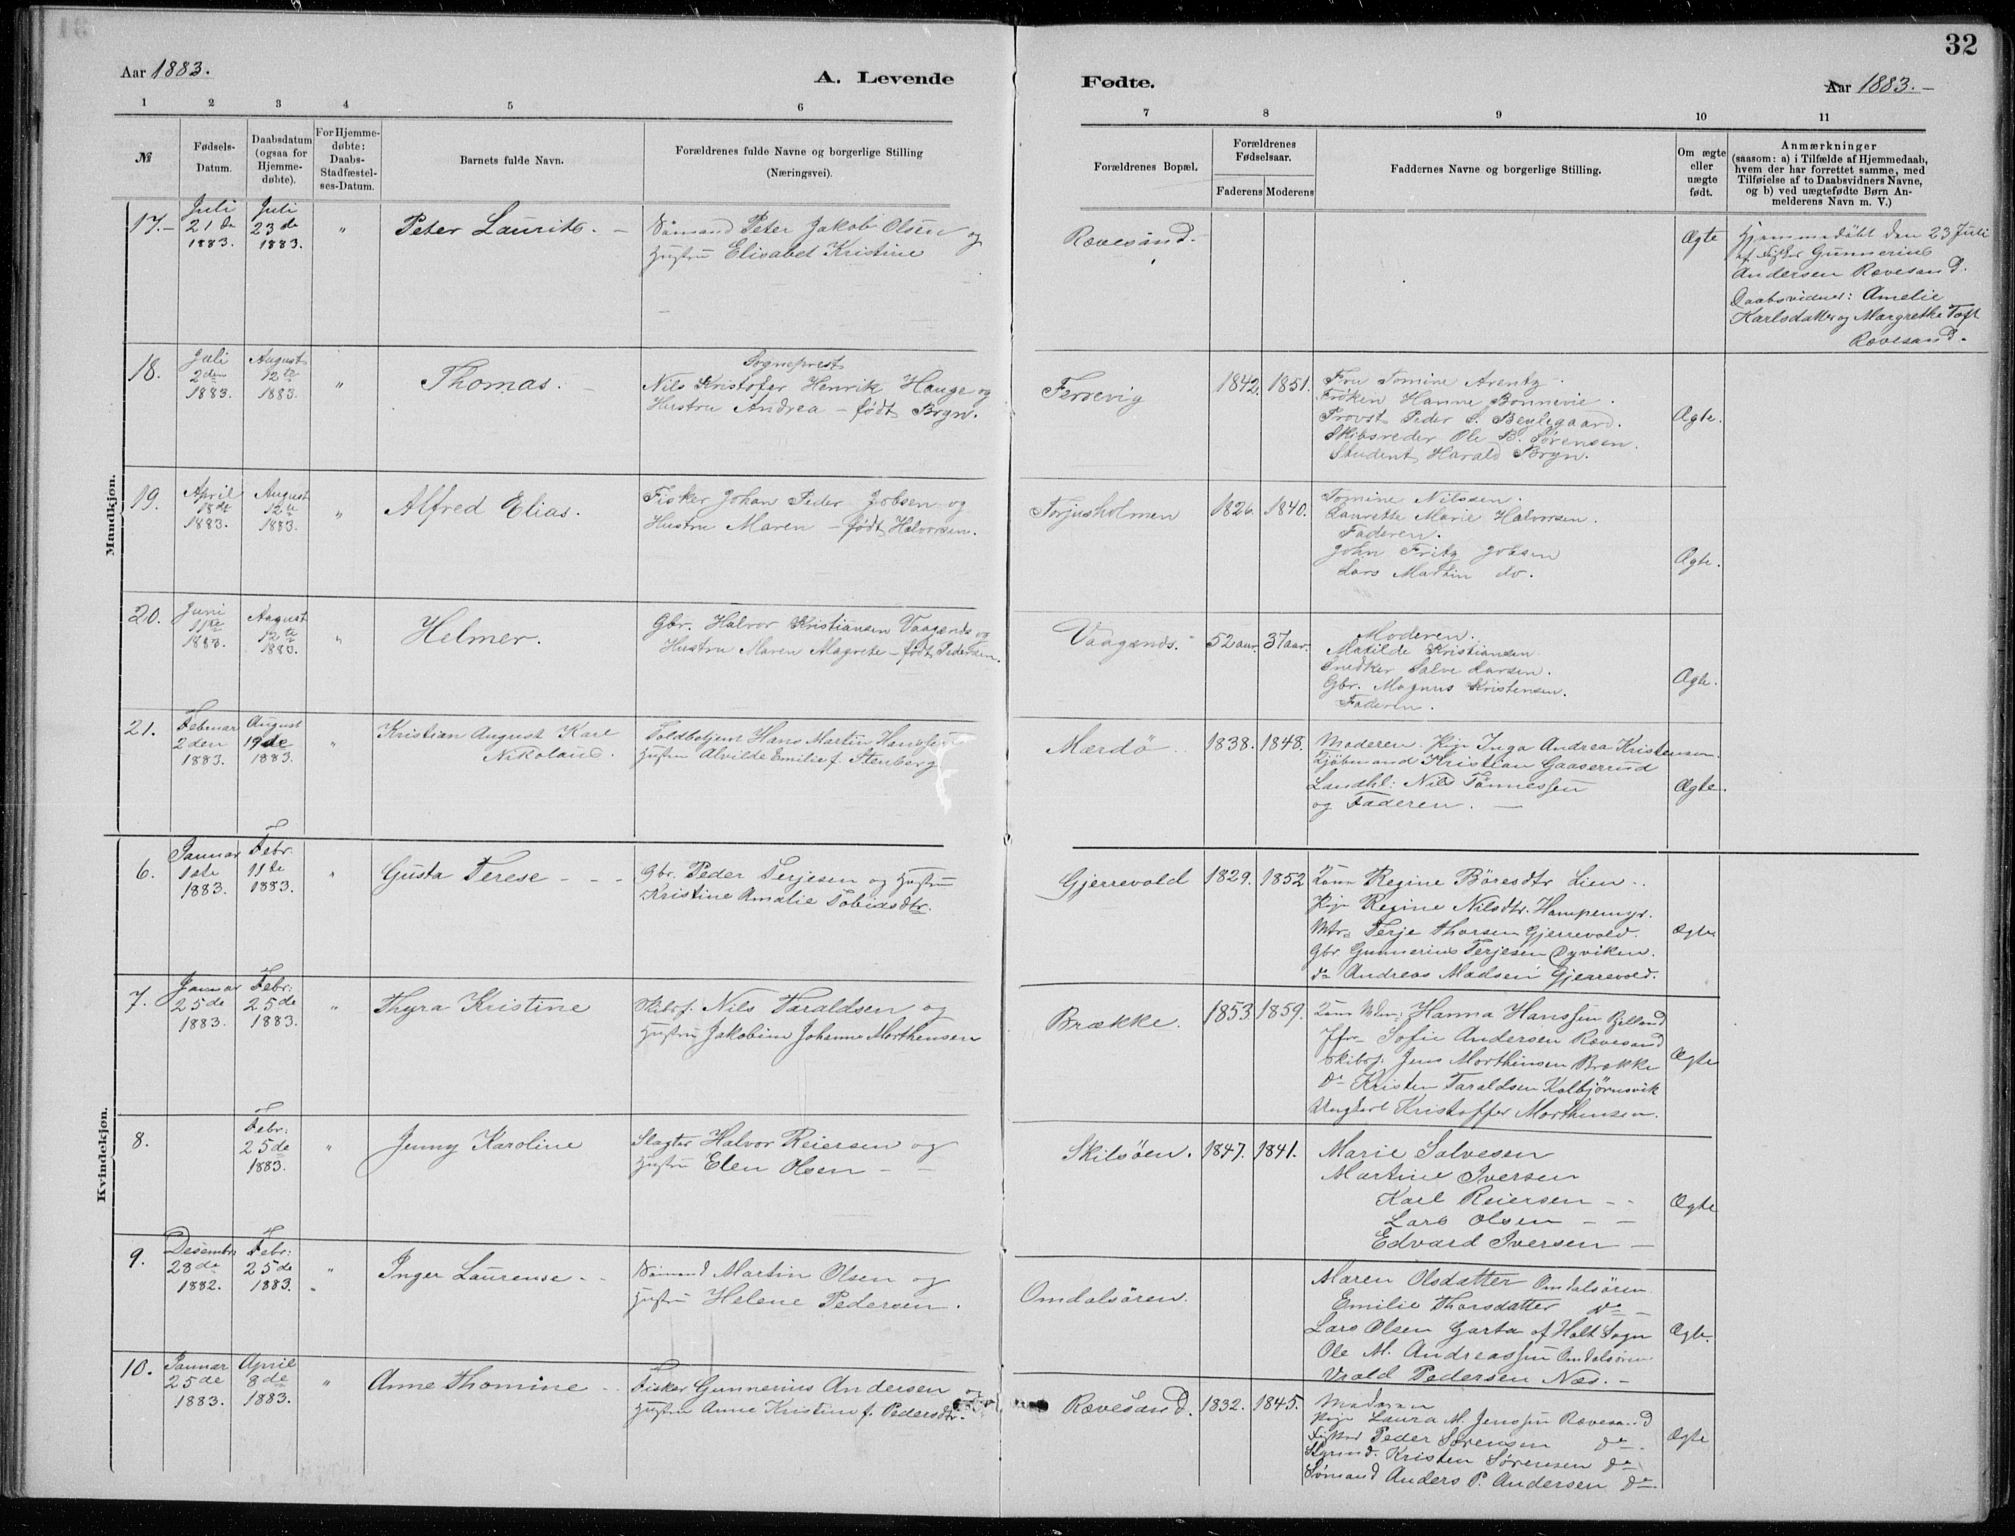 32
Aar 1883.
A. Levende
Fødte.
Aar 1883.—
1 2 3 4 5 6
7 8 9 10 11
№
Fødsels-
Datum.
Daabsdatum
(ogsaa for
Hjemme-
døbte).
For Hjemme-
døbte:
Daabs-
Stadfæstel-
ses-Datum.
Barnets fulde Navn.
Forældrenes fulde Navne og borgerlige Stilling
(Næringsvei).
Forældrenes Bopæl.
Forældrenes
Fødselsaar.
Faderens Moderens
Faddernes Navne og borgerlige Stilling.
Om ægte
eller
uægte
født.
Anmærkninger
(saasom: a) i Tilfælde af Hjemmedaab,
hvem der har forrettet samme, med
Tilføielse af to Daabsvidners Navne,
og b) ved uægtefødte Børn An-
melderens Navn m. V.)
Mandkjøn.
17.—
Juli
21de
1883.
Juli
23de
1883.
"
Peter Laurits. —
Sømand Peter Jakob Olsen og
Hustru Elisabet Kristine
Rævesand.
Ægte
Hjemmedøbt den 23 Juli
af Fisker Gunnerius
Andersen Rævesand.
Daabsvidner: Amelie
Karlsdatter og Margrethe Toft
Rævesand.
18.
Juli
2den
1883.
August
12te
1883.
"
Thomas. —
Sogneprest
Nils Kristofer Henrik Hauge og
Hustru Andrea — født Bryn.
Fervevig
1842. 1851.
Fru Tomine Arentz.
Frøken Hanne Bonnevie.
Provst Peder S. Beylegaard.
Skibsreder Ole B. Sørensen.
Student Harald Bryn.
Ægte.
19.
April
18de
1883.
August
12te
1883.
"
Alfred Elias.
Fisker Johan Peder Jobsen og
Hustru Maren — født Halvorsen.
Torjusholmen
1826. 1840.
Tomine Nilssen.
Laurette Marie Halvorsen.
Faderen.
John Fritz Jobsen
Lars Martin do.
Ægte.
20.
Juni
11te
1883.
August
12te
1883.
"
Helmer.
Gbr. Halvor Kristiansen Vaagsnæs og
Hustru Maren Magrete — født Pedersen.
52 aar. 37 aar.
Moderen.
Matilde Kristiansen
Snedker Salve Larsen.
Gbr. Magnus Kristensen.
Faderen.
Ægte.
21.
Februar
2den
1883.
August
19de
1883.
"
Kristian August Karl
Nikolaus.
Toldbetjent Hans Martin Hanssen
Hustru Alvilde Emilie f. Stenberg
Mærdö
1838. 1848.
Moderen. Pige Inga Andrea Kristensen.
Kjøbmand Kristian Gaaserud
Landhl: Nils Tønnessen
og Faderen. —
Ægte.
Kvindekjøn.
6.
Januar
1ste
1883.
Febr.
11te
1883.
"
Gusta Terese — — —
Gbr. Peder Terjesen og Hustru
Kristine Amalie Tobiasdtr.
Gjerrevold
1829. 1852
Kone Regine Böresdtr Lien..
Pige Regine Nilsdtr. Hampemyr.
Mtr. Terje Thorsen Gjerrevold.
Gbr Gunnerius Terjesen Dyviken.
do Andreas Madsen Gjerrevold.
Ægte
7.
Januar
25de
1883.
Febr:
25de
1883.
"
Thyra Kristine
Skibsf. Nils Taraldsen og
Hustru Jakobine Johanne Morthensen
Brække.
1853. 1859.
Hanna Hanssen Bjelland
Jfr. Sofie Andersen Rævesand
Skibsf. Jens Morthensen Brække
Do Kristen Taraldsen Kolbjørnsvik
Ungkarl Kristoffer Morthensen.
Ægte
8.
Febr:
25de
1883.
"
Jenny Karoline
Slagter Halvor Reiersen og
Hustru Elen Olsen — —
Skilsöen.
1847. 1841.
Marie Salvesen
Martine Iversen
Karl Reiersen — -
Lars Olsen — —
Edvard Iversen —
Ægte
9.
Desembr
28de
1882.
Febr:
25de
1883.
"
Inger Laurense - -
Sømand Martin Olsen og
Hustru Helene Pedersen.
Omdalsören.
Maren Olsdatter Omdalsören
Emilie Thorsdatter do —
Lars Olsen Garta af Holt Sogn
Ole M. Andreassen Omdalsören
Pedersen Næs. —
Ægte.
10.
Januar
25de
1883.
April
8de
1883.
"
Anne Thomine - -
Fisker Gunnerius Andersen og
Hustru Anne Kristine f. Pedersdtr.
Rævesand.
1832. 1845.
Moderen
Pige Laura M. Jenssen Rævesand
Fisker Peder Sørensen do
Styrmd. Kristen Sørensen do
Sømand Anders P. Andersen do
Ægte